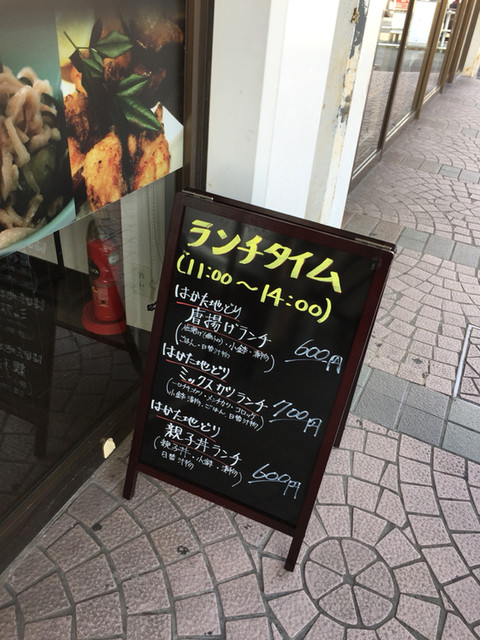 ランチタイム
(11:00～14:00)
はかた地どり
唐揚げランチ 600円
・小鉢・漬物
ごはん・日替汁物)
はかた地どり
ミックスカツランチ 700円
メンチカツ・コロッケ
小鉢・漬物・ごはん・日替汁物)
はかた地どり
親子丼ランチ 600円
(親子丼・小鉢・漬物
日替汁物)